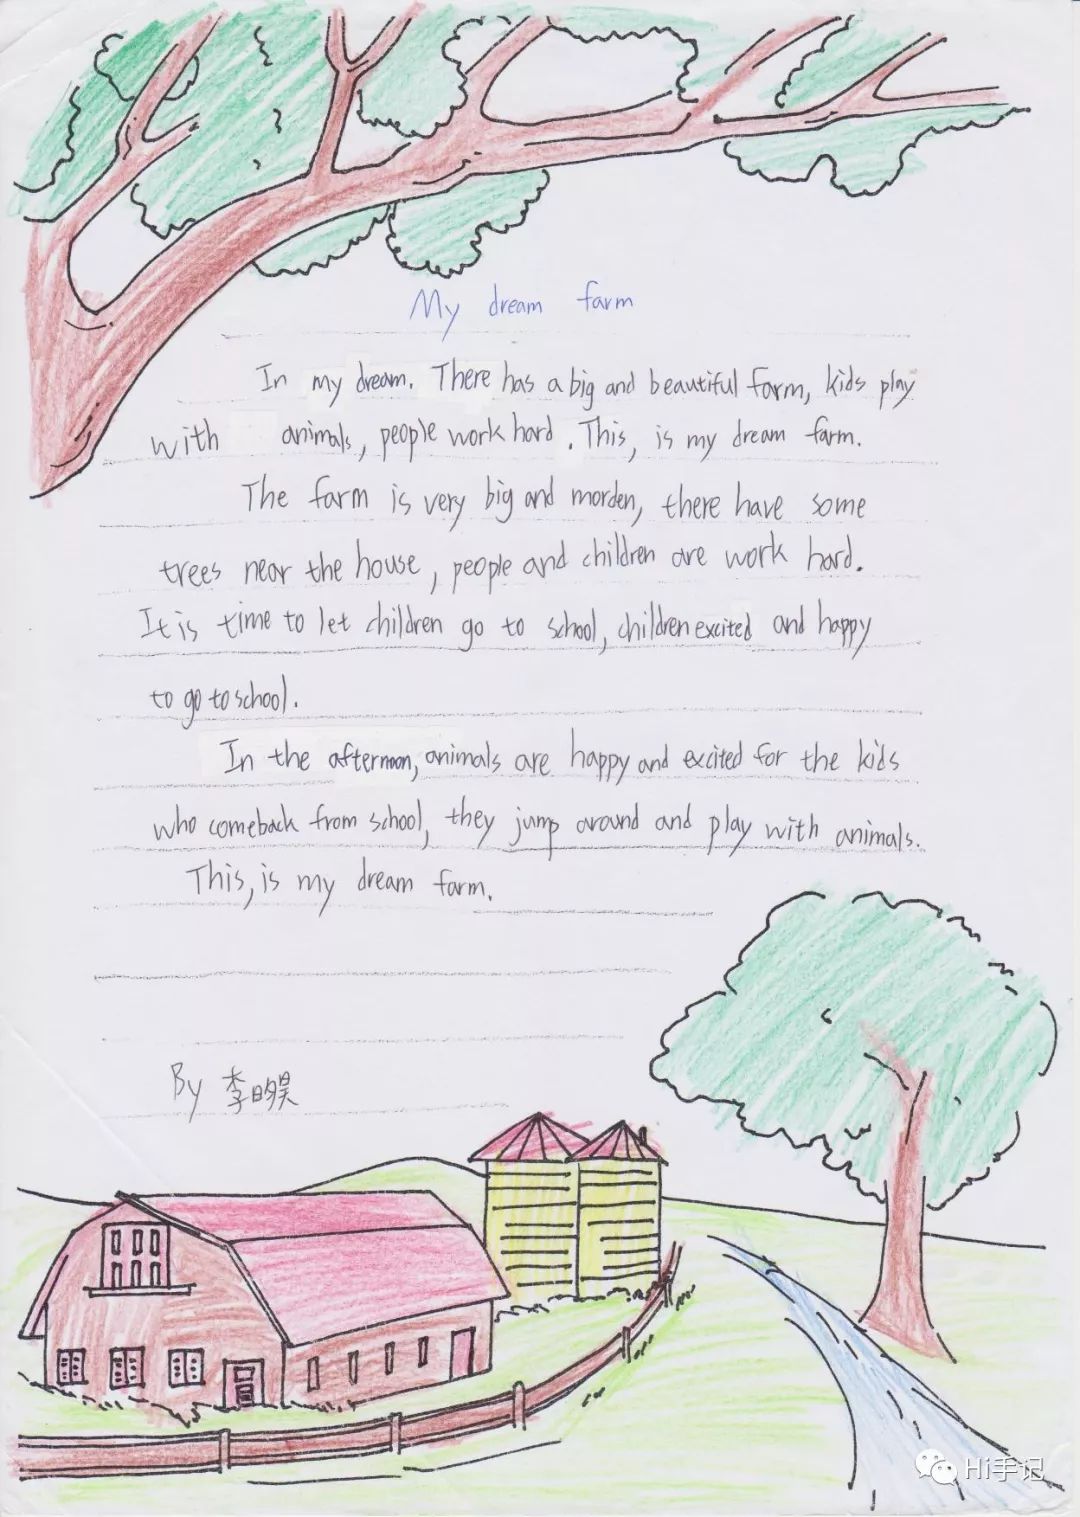 My dream farm
In my dream. There has a big and beautiful farm, kids play
with animals, people work hard. This, is my dream farm.
The farm is very big and morden, there have some
trees near the house, people and children are work hard.
It is time to let children go to school, children excited and happy
to go to school.
In the afternoon, animals are happy and excited for the kids
who comeback from school, they jump around and play with animals.
This, is my dream farm.
By 李明昊
Hi手记